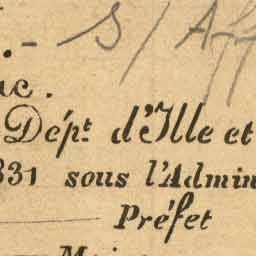 S/Aff
Dépt d'Ille et
831 sous l'Admin
Préfet